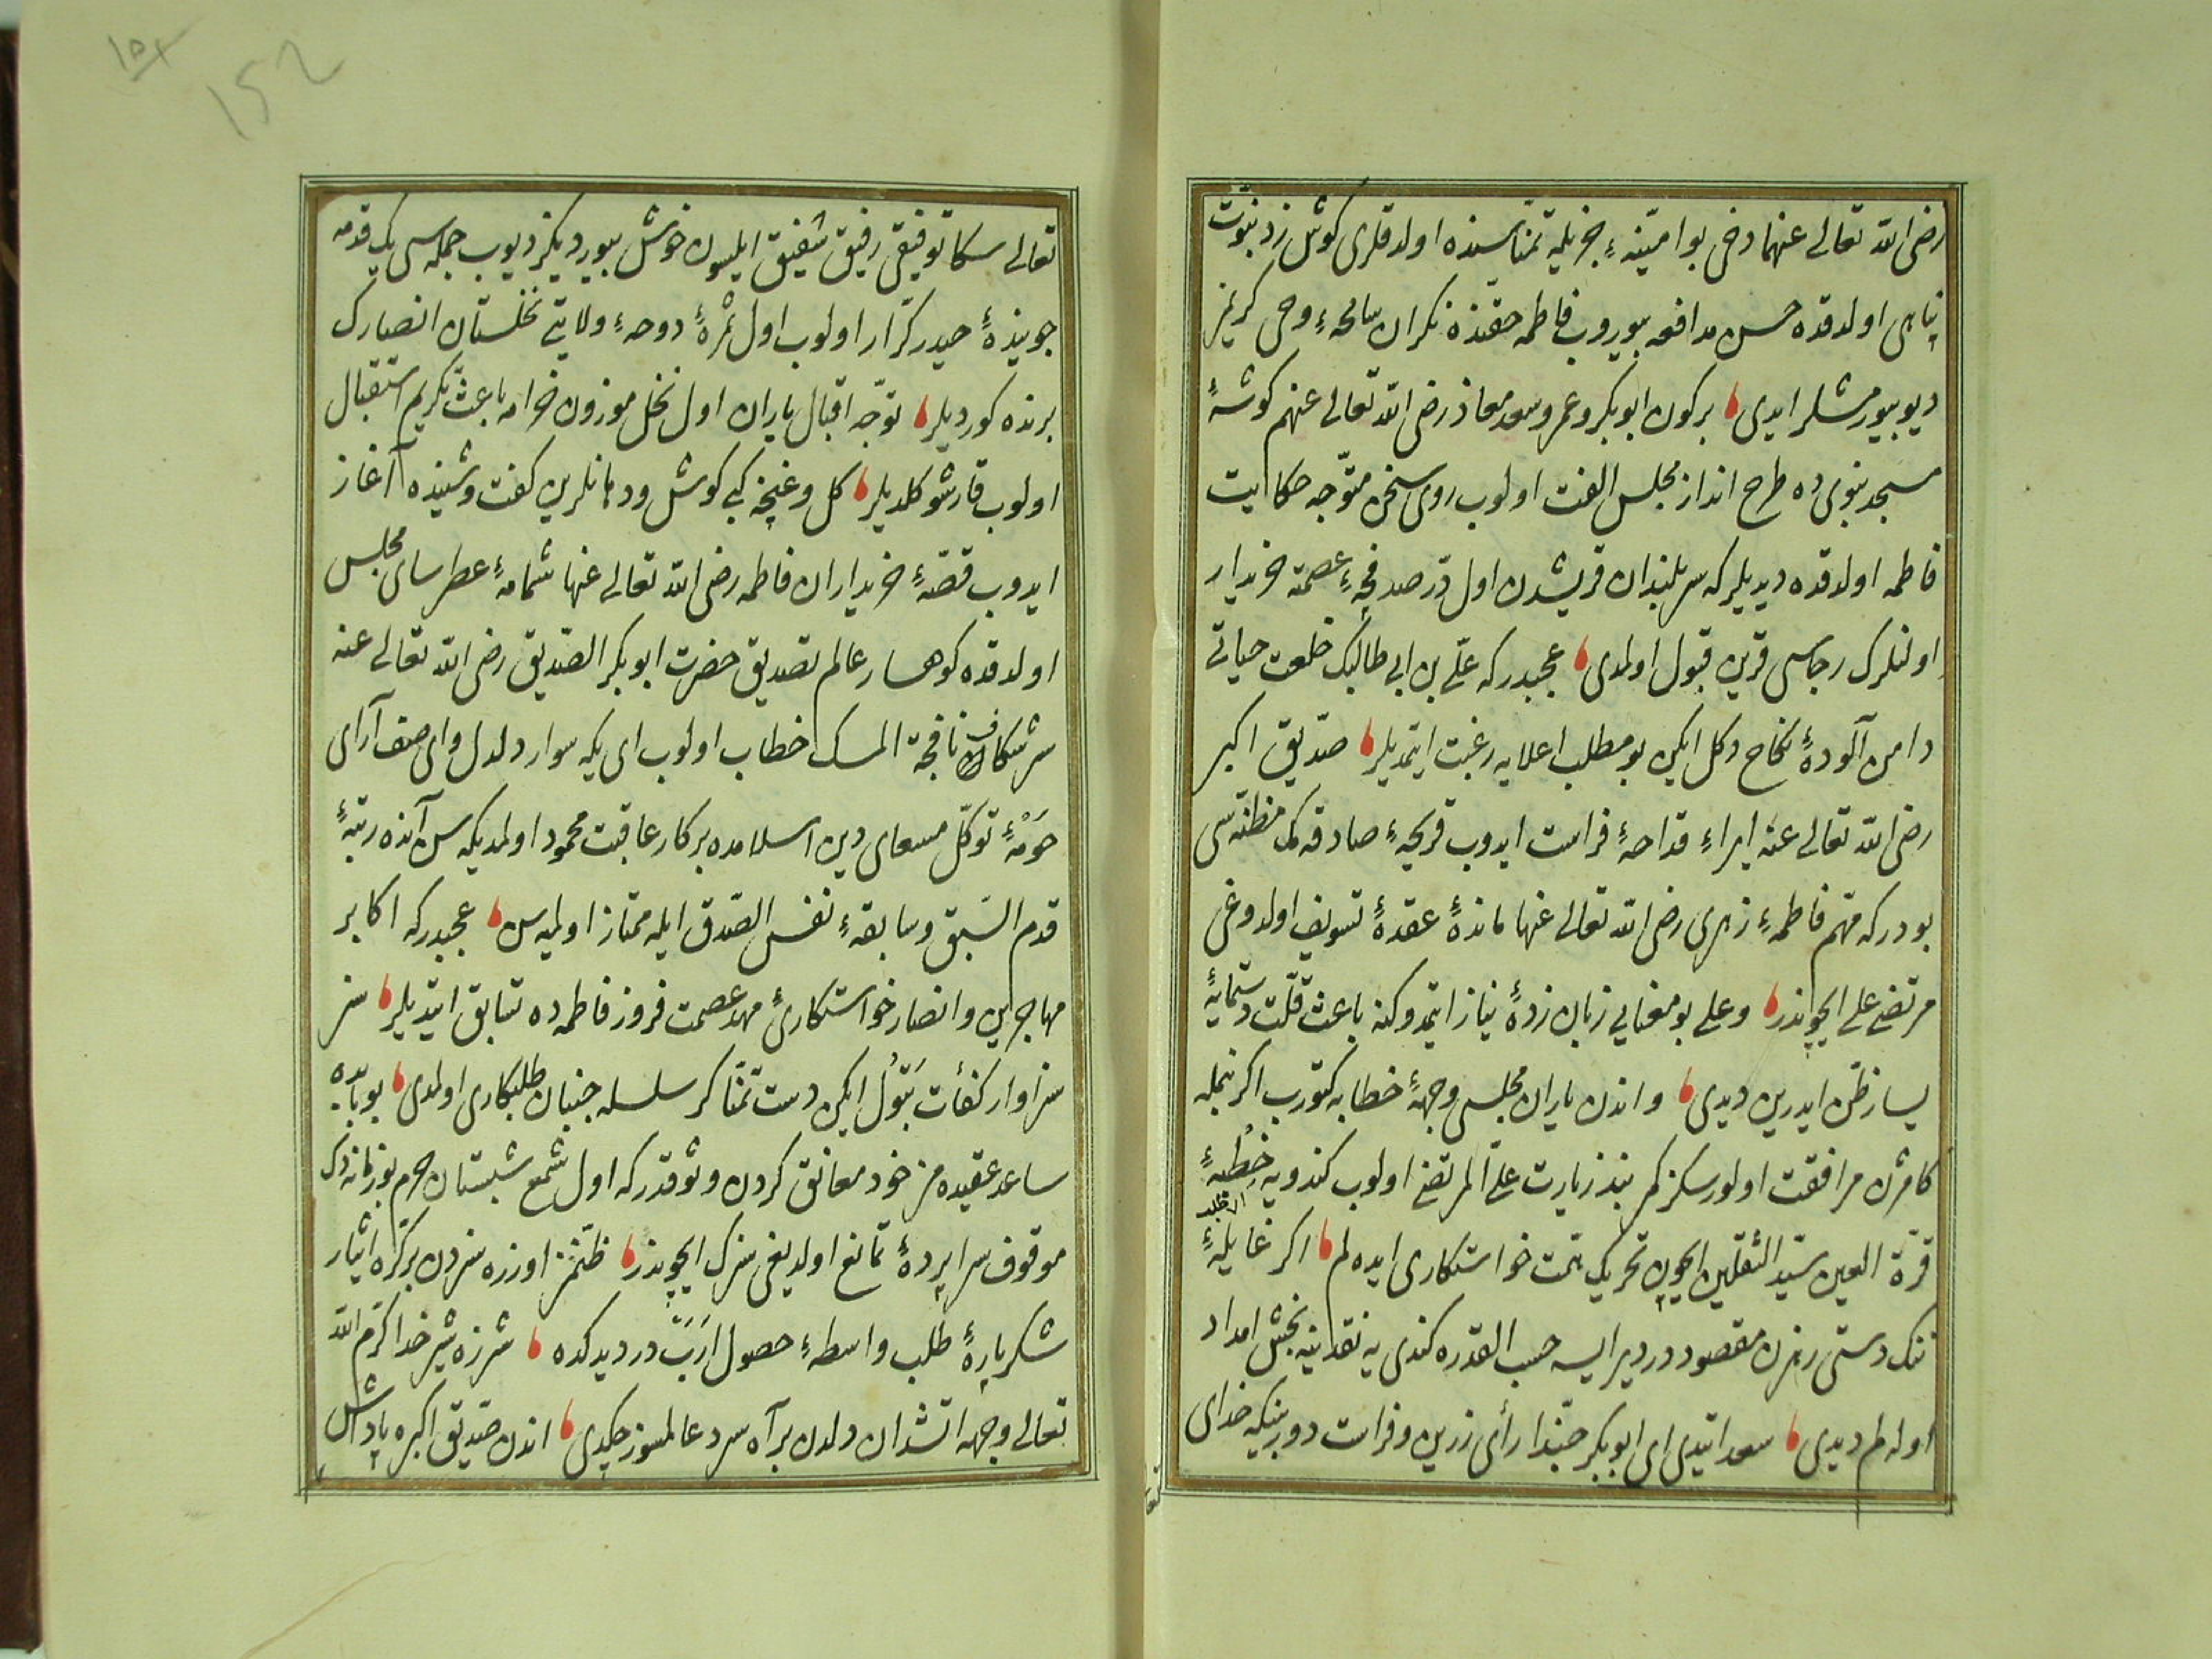 رضی الله تعالی عنهما دخی بو امنیّهٔ جزیله تمنّاسنده اولدقلری کوش زد نبوّت
پناهی اولدقده حسن مدافعه بیوروب فاطمه حقّنده نکران سانحهٔ وحی کریمز
دیو بیورمشلر ایدی برکون ابوبکر و عمر و سعد معاذ رضی الله تعالی عنهم کوشهٔ
مسجد نبوی ده طرح انداز مجلس الفت اولوب روی سخن متوجّه حکایت
فاطمه اولدقده دیدیلر که سربلندان قریشدن اول درّ صدفچهٔ عصمته خریدار
اولنلرک رجاسی قرین قبول اولمدی عجبدر که علی بن ابی طالبک خلعت حیاتی
دامن آلودهٔ نکاح دکل ایکن بو مطلب اعلایه رغبت ایتمدیلر صدّیق اکبر
رضی الله تعالی عنه ایراء قداحهٔ فراست ایدوب قریحهٔ صادقه مک مظنّه سی
بودر که مهمّ فاطمهٔ زهری رضی الله تعالی عنها ماندهٔ عقدهٔ تسویف اولدوغی
مرتضی علی ایچوندر و علی بو معنایی زبان زدهٔ نیاز ایتمدوکنه باعث قلّت دستمایهٔ
یسار ظن ایدرین دیدی و اندن یاران مجلسی وجههٔ خطابه کتورب اکر بنمله
کامزن مرافقت اولورسکز کم بنذ زیارت علی المرتضی اولوب کندویه خطبهٔ
قرّة العین سیّد الثّقلین ایچون تحریک همّت خواستکاری ایده لم اکر غایلهٔ
تنک دستی رهزن مقصوددر دیر ایسه حسب القدره کندی یه نقدینه بخش امداد
اوله لم دیدی سعد ایتدی ای ابوبکر حبّذا رأی زرین و فراست دوربینکه خدای
تعالی سکا توفیقی رفیق شفیق ایلیسون خوش بیوردیکز دیوب جمله سی یک قدمه
جویندهٔ حیدر کرّار اولوب اول ثمرهٔ دوحهٔ ولایتی نخلستان انصارک
برنده کوردیلر توجّه اقبال یاران اول نخل موزون خرامه باعث تکریم استقبال
اولوب قارشو کلدیلر کل و غنچه کبی کوش و دهانلرین کفت و شنیده آغاز
ایدوب قصّهٔ خریداران فاطمه رضی الله تعالی عنها شمامهٔ عطرسای مجلس
اولدقده کوهسار عالم تصدیق حضرت ابوبکر الصّدیق رضی الله تعالی عنه
سر شکاف نافجة المسک خطاب اولوب ای یکه سوار دلدل و ای صف آرای
حومهٔ توکّل مسعای دین اسلامده بر کار عاقبت محمود اولمدیکه سن آنده رتبهٔ
قدم السّبق و سابقهٔ نفس الصّدق ایله ممتاز اولمیه سن عجبدر که اکابر
مهاجرین و انصار خواستکاریٔ مهد عصمت فروز فاطمه ده تسابق ایتدیلر سز
سزاوار کفأت بتول ایکن دست تمنّاکز سلسله جنبان طلبکاری اولمدی بو بابده
ساعد عقیده مز خود معانق کردن وثوقدر که اول شمع شبستان حرم بو زمانه دک
موقوف سراپردهٔ تمانع اولدیغی سزک ایچوندر ظنّمز اوزره سزدن بر کرّه ایثار
شکرپارهٔ طلب واسطهٔ حصول ارب در دیدکده شرزه شیر خدا کرّم الله
تعالی وجهه آتشدان دلدن بر آه سرد عالمسوز چکدی اندن صدّیق اکبره پاداش
152